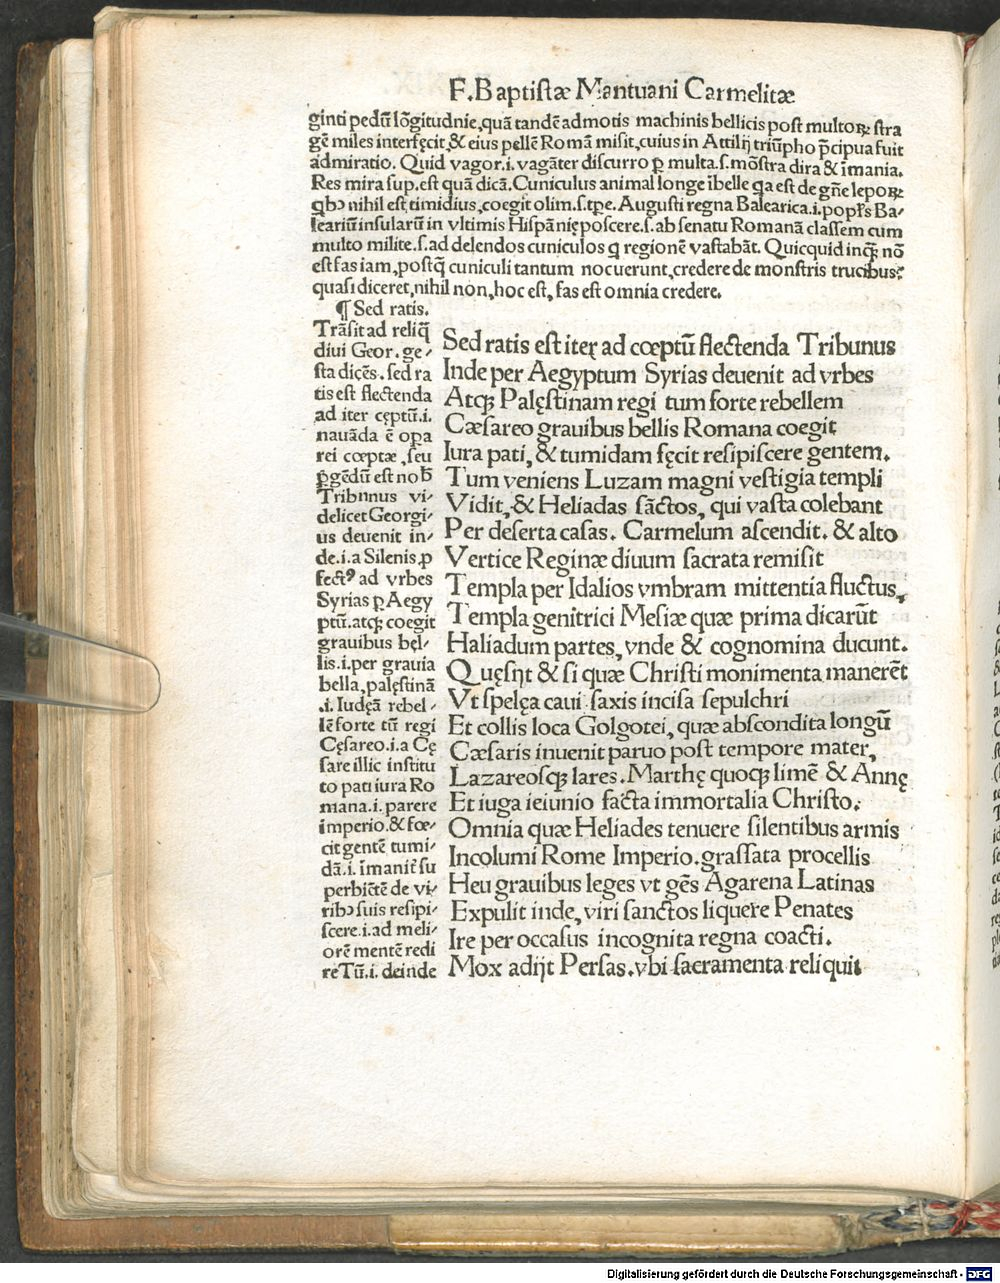 F.Baptistæ Mantuani Carmelitæ
ginti pedũ lõgitudnie,quã tandẽ admotis machinis bellicis post multoꝝ stra
gẽ miles interfęcit,& eius pellẽ Romã misit,cuius in Attilij triũpho p̃cipua fuit
admiratio. Quid vagor.i. vagãter discurro ꝑ multa.s.mõstra dira & ĩmania.
Res mira sup.est quã dicã.Cuniculus animal longe ĩbelle q̃a est de gñe lepoꝝ
qbꝰ nihil est timidius,coegit olim.s.tꝑe. Augusti regna Balearica.i.popl's Ba/
leariũ insularũ in vltimis Hispãnię poscere.s.ab senatu Romanã classem cum
multo milite.s.ad delendos cuniculos q regionẽ vastabãt. Quicquid inqꝫ nõ
est fas iam,postq̃ cuniculi tantum nocuerunt,credere de monstris trucibus?
quasi diceret,nihil non,hoc est,fas est omnia credere.
¶ Sed ratis.
Trãsit ad reliq̃
diui Geor.ge/
sta dicẽs.sed ra
tis est flectenda
ad iter cęptũ.i.
nauãda ẽ oꝑa
rei cœptæ,seu
ꝓgẽdũ est nob̃
Tribnnus vi/
delicet Georgi/
us deuenit in/
de.i.a Silenis ꝓ
fectꝰ ad vrbes
Syrias ꝑ Aegy
ptũ.atqꝫ coegit
grauibus bęl/
lis.i.per grauia
bella,palęstinã
.i. Iudęã rebel/
lẽ forte tũ regi
Cęsareo.i.a Cę
sare illic institu
to pati iura Ro
mana.i.parere
imperio.& fœ/
cit gentẽ tumi/
dã.i.ĩmanit̃ su
perbiẽtẽ de vi/
ribꝰ suis resipi/
scere.i.ad meli/
orẽ mentẽ redi
re Tũ.i.deinde
Sed ratis est iteꝛ ad cœptũ flectenda Tribunus
Inde per Aegyptum Syrias deuenit ad vrbes
Atqꝫ Palęstinam regi tum forte rebellem
Cæsareo grauibus bellis Romana coegit
Iura pati, & tumidam fęcit resipiscere gentem.
Tum veniens Luzam magni vestigia templi
Vidit, & Heliadas sãctos, qui vasta colebant
Per deserta casas. Carmelum ascendit. & alto
Vertice Reginæ diuum sacrata remisit
Templa per Idalios vmbram mittentia fluctus,
Templa genitrici Mesiæ quæ prima dicarũt
Haliadum partes, vnde & cognomina ducunt.
Quęsijt & si quæ Christi monimenta manerẽt
Vt spelęa caui saxis incisa sepulchri
Et collis loca Golgotei, quæ abscondita longũ
Cæsaris inuenit paruo post tempore mater,
Lazareosqꝫ lares. Marthę quoqꝫ limẽ & Annę
Et iuga ieiunio facta immortalia Christo.
Omnia quæ Heliades tenuere silentibus armis
Incolumi Rome Imperio.grassata procellis
Heu grauibus leges vt gẽs Agarena Latinas
Expulit inde, viri sanctos liquere Penates
Ire per occasus incognita regna coacti.
Mox adijt Persas.vbi sacramenta reliquit
Digitalisierung gefördert durch die Deutsche Forschungsgemeinschaft - DFG